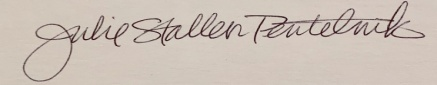 Julie Stallen Pentelnik